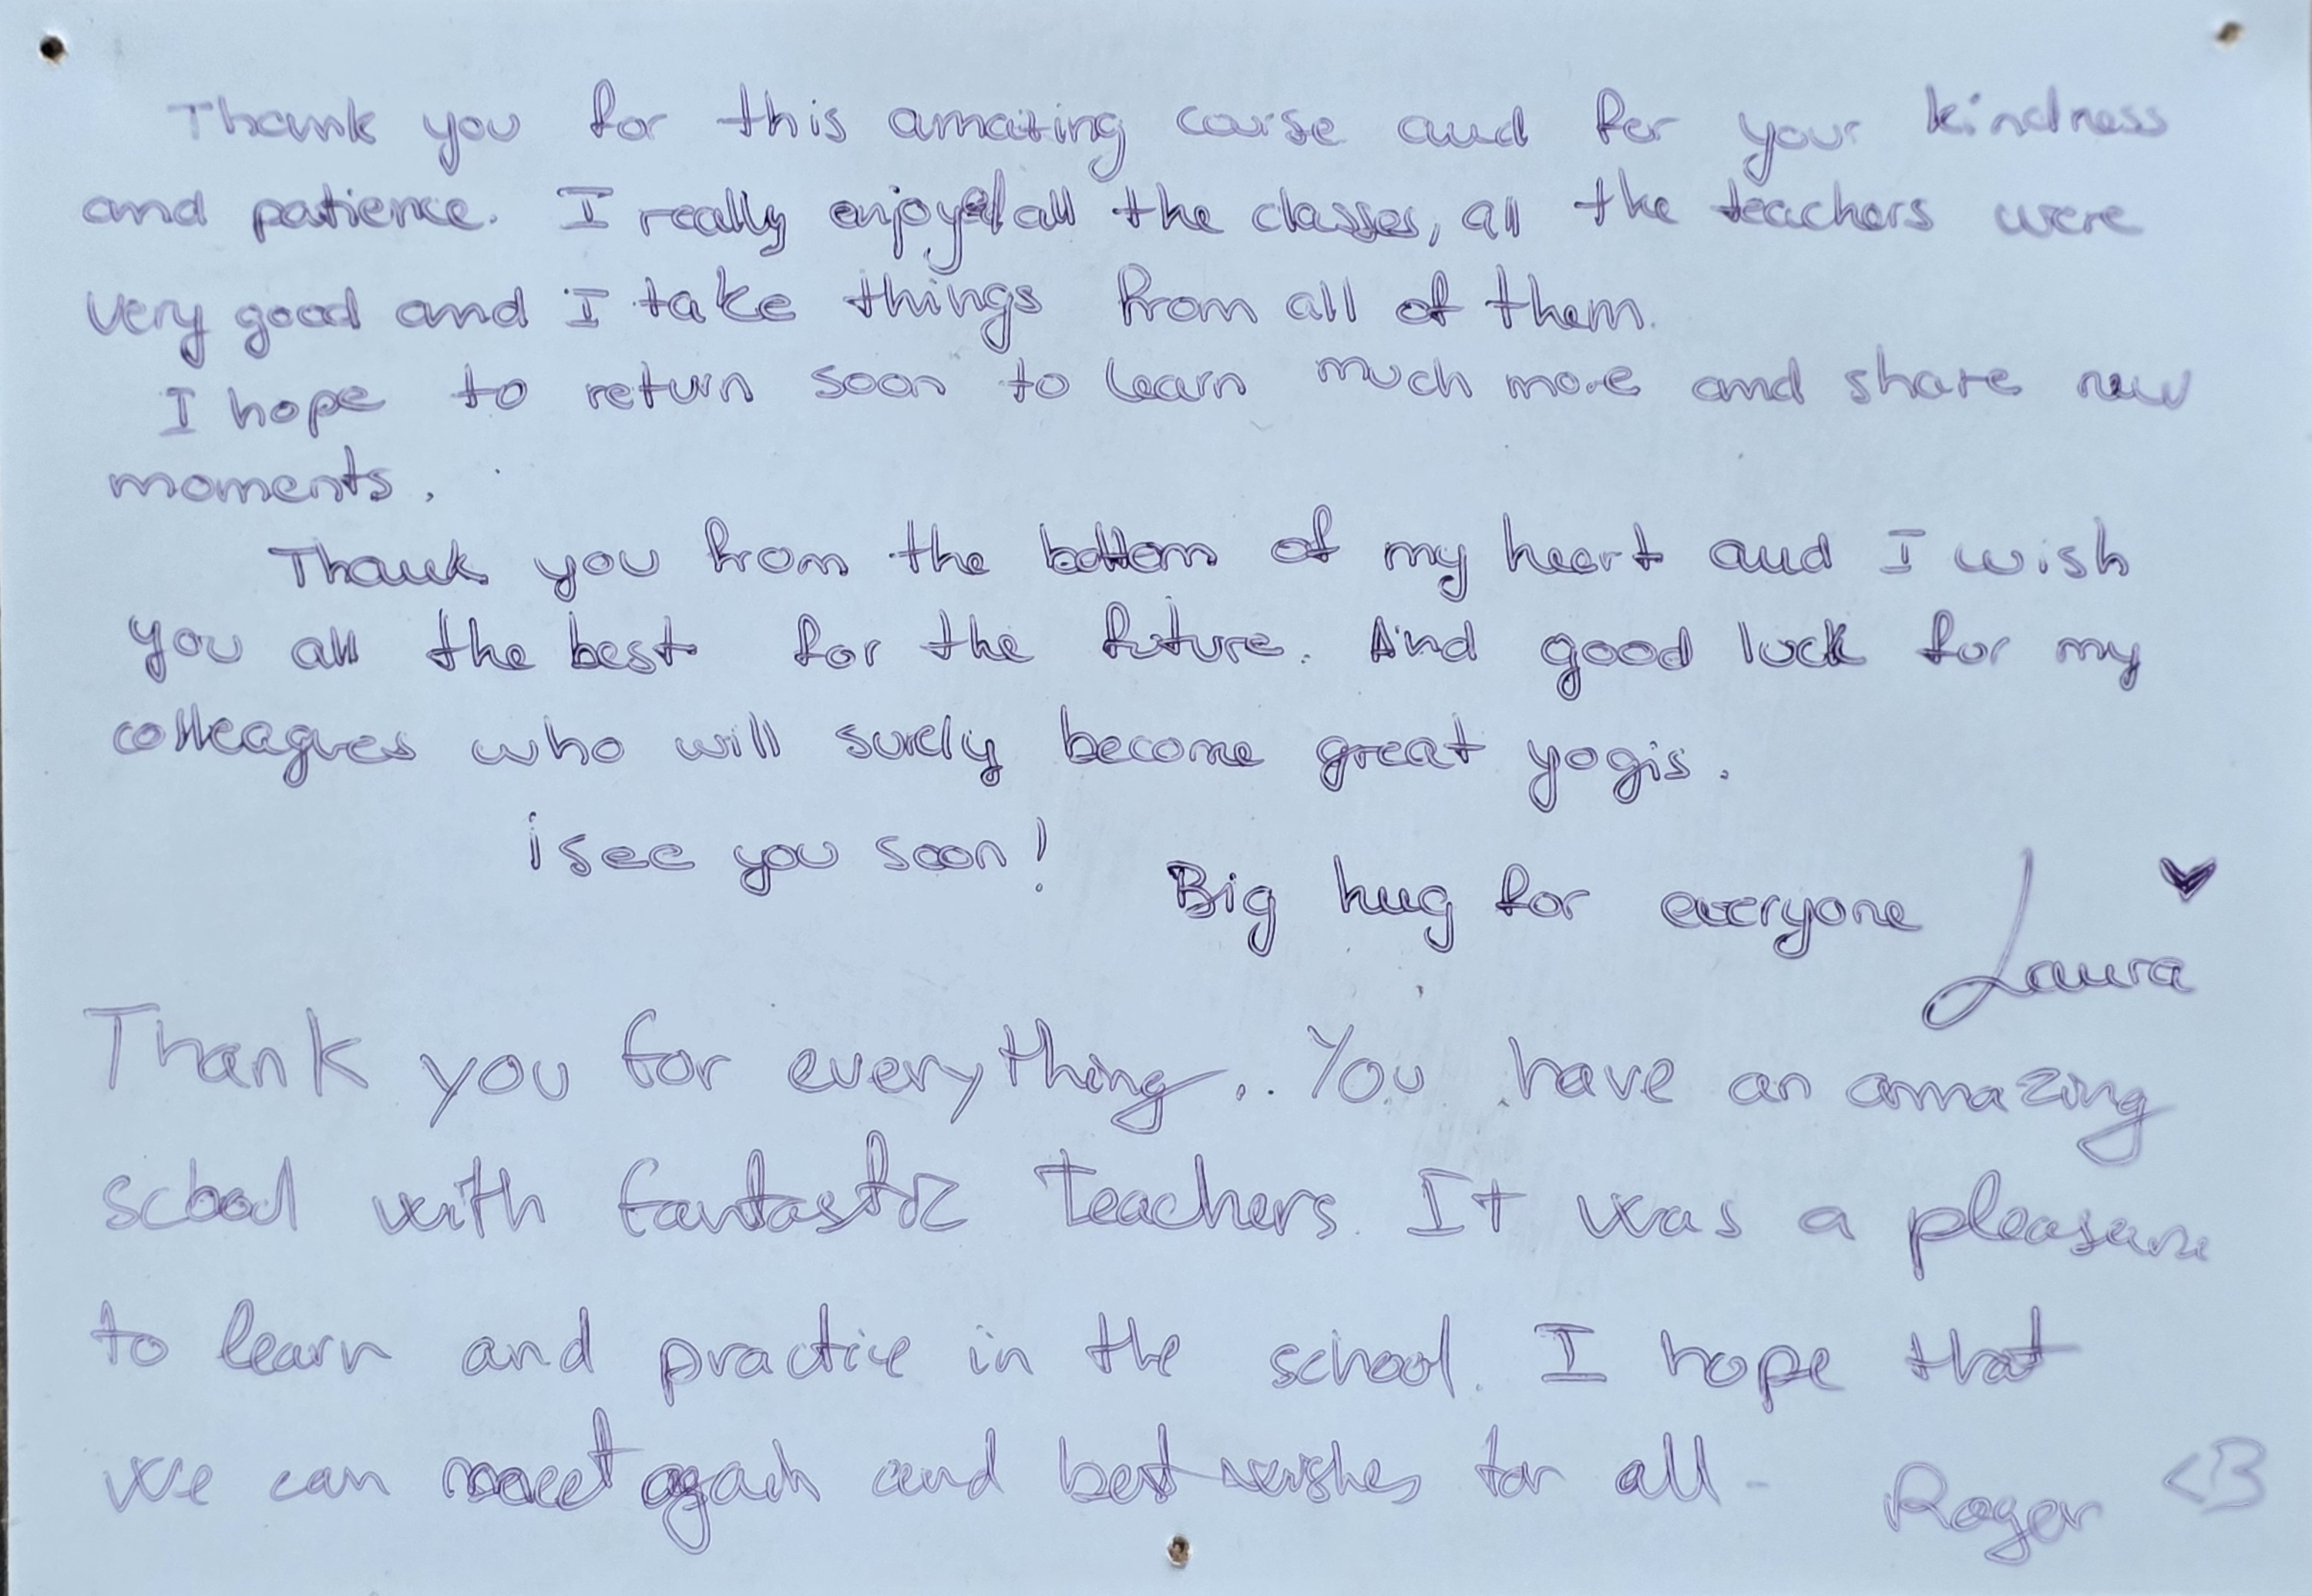 Thank you for this amazing course and for your kindness
and patience. I really enjoyed all the classes, all the teachers were
very good and I take things from all of them.
I hope to return soon to learn much more and share new
moments.
Thank you from the bottom of my heart and I wish
you all the best for the future. And good luck for my
colleagues who will surely become great yogis.
¡see you soon!
Big hug for everyone
Laura
Thank you for everything.. You have an amazing
school with fantastic teachers. It was a pleasure
to learn and practice in the school. I hope that
we can meet again and best wishes for all -
Roger <3